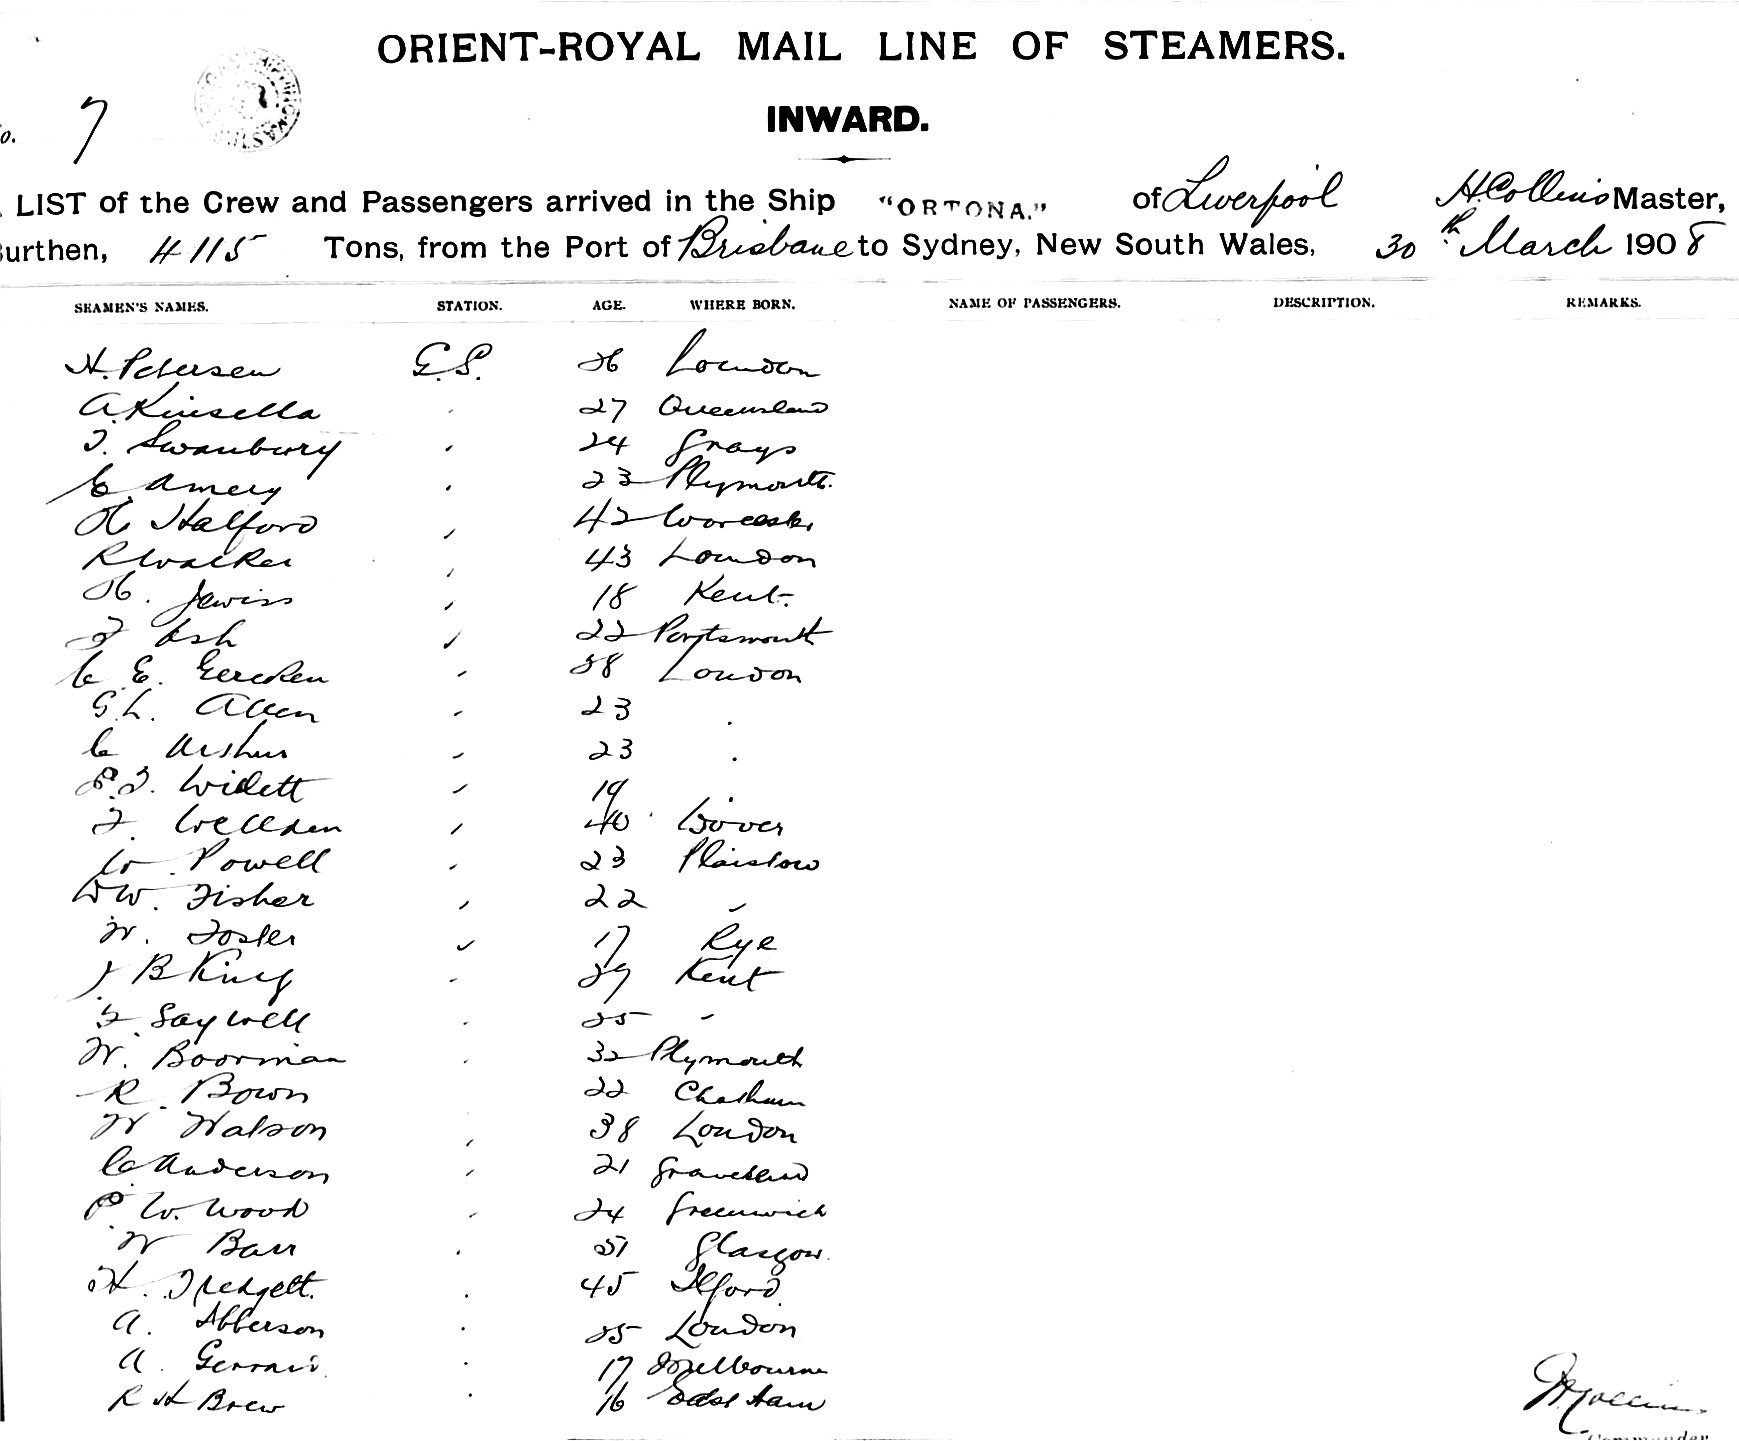 ORIENT-ROYAL MAIL LINE OF STEAMERS.
INWARD.
o. 7
LIST of the Crew and Passengers arrived in the Ship "ORTONA." of Liverpool H. Collins Master,
urthen, 4115 Tons, from the Port of Brisbane to Sydney, New South Wales, 30th March 1908
SEAMEN'S NAMES. STATION. AGE. WHERE BORN. NAME OF PASSENGERS. DESCRIPTION. REMARKS.
H. Petersen G.S. 26 London
A. Kinsella 27 Queensland
T. Swanbury 24 Grays
C. Amery 23 Plymouth.
H. Halford 42 Worcester
R Walker 43 London
H. Jewiss 18 Kent.
F Ash 22 Portsmouth
C E. Gercken 38 London
G. L. Allen 23
C Arthur 23
P. J. Widett 19
F. Wellden 40 Dover
W. Powell 23 Plaistow
W W. Fisher 22
W. Foster 17 Rye
J B King 29 Kent
F. Saywell 25
W. Boorman 32 Plymouth
R. Bown 22 Chatham
W Watson 38 London
C. Anderson 21 Gravesend
P W. Wood 24 Greenwich
W Barr 51 Glasgow.
H. Tredgett. 45 Ilford
A. Ibberson 25 London
A. 17 Melbourne
R H Brew 16 East Ham
H. Collins
Commander